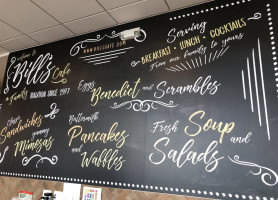 welcome to
Bill's
Cafe
a family
tradition since 1977
WWW.BILLSCAFE.COM
Serving
BREAKFAST • LUNCH • COCKTAILS
From our family to yours
Eggs
Benedict and Scrambles
Sandwiches
yummy
Mimosas
Buttermilk
Pancakes
and
Waffles
Fresh Soup
and
Salads